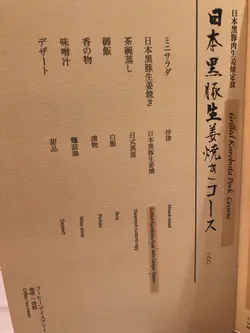 日本黒豚肉生姜焼定食
日本黒豚生姜焼きコース
Grilled Kurobuta Pork Course
ミニサラダ
沙律
Mixed salad
日本黒豚生姜焼き
日本黒豚生姜燒
茶碗蒸し
日式蒸蛋
Steamed custard egg
御飯
白飯
Rice
香の物
漬物
Pickles
味噌汁
麵豉湯
Miso soup
デザート
甜品
Dessert
コーヒー・アイスクリーム